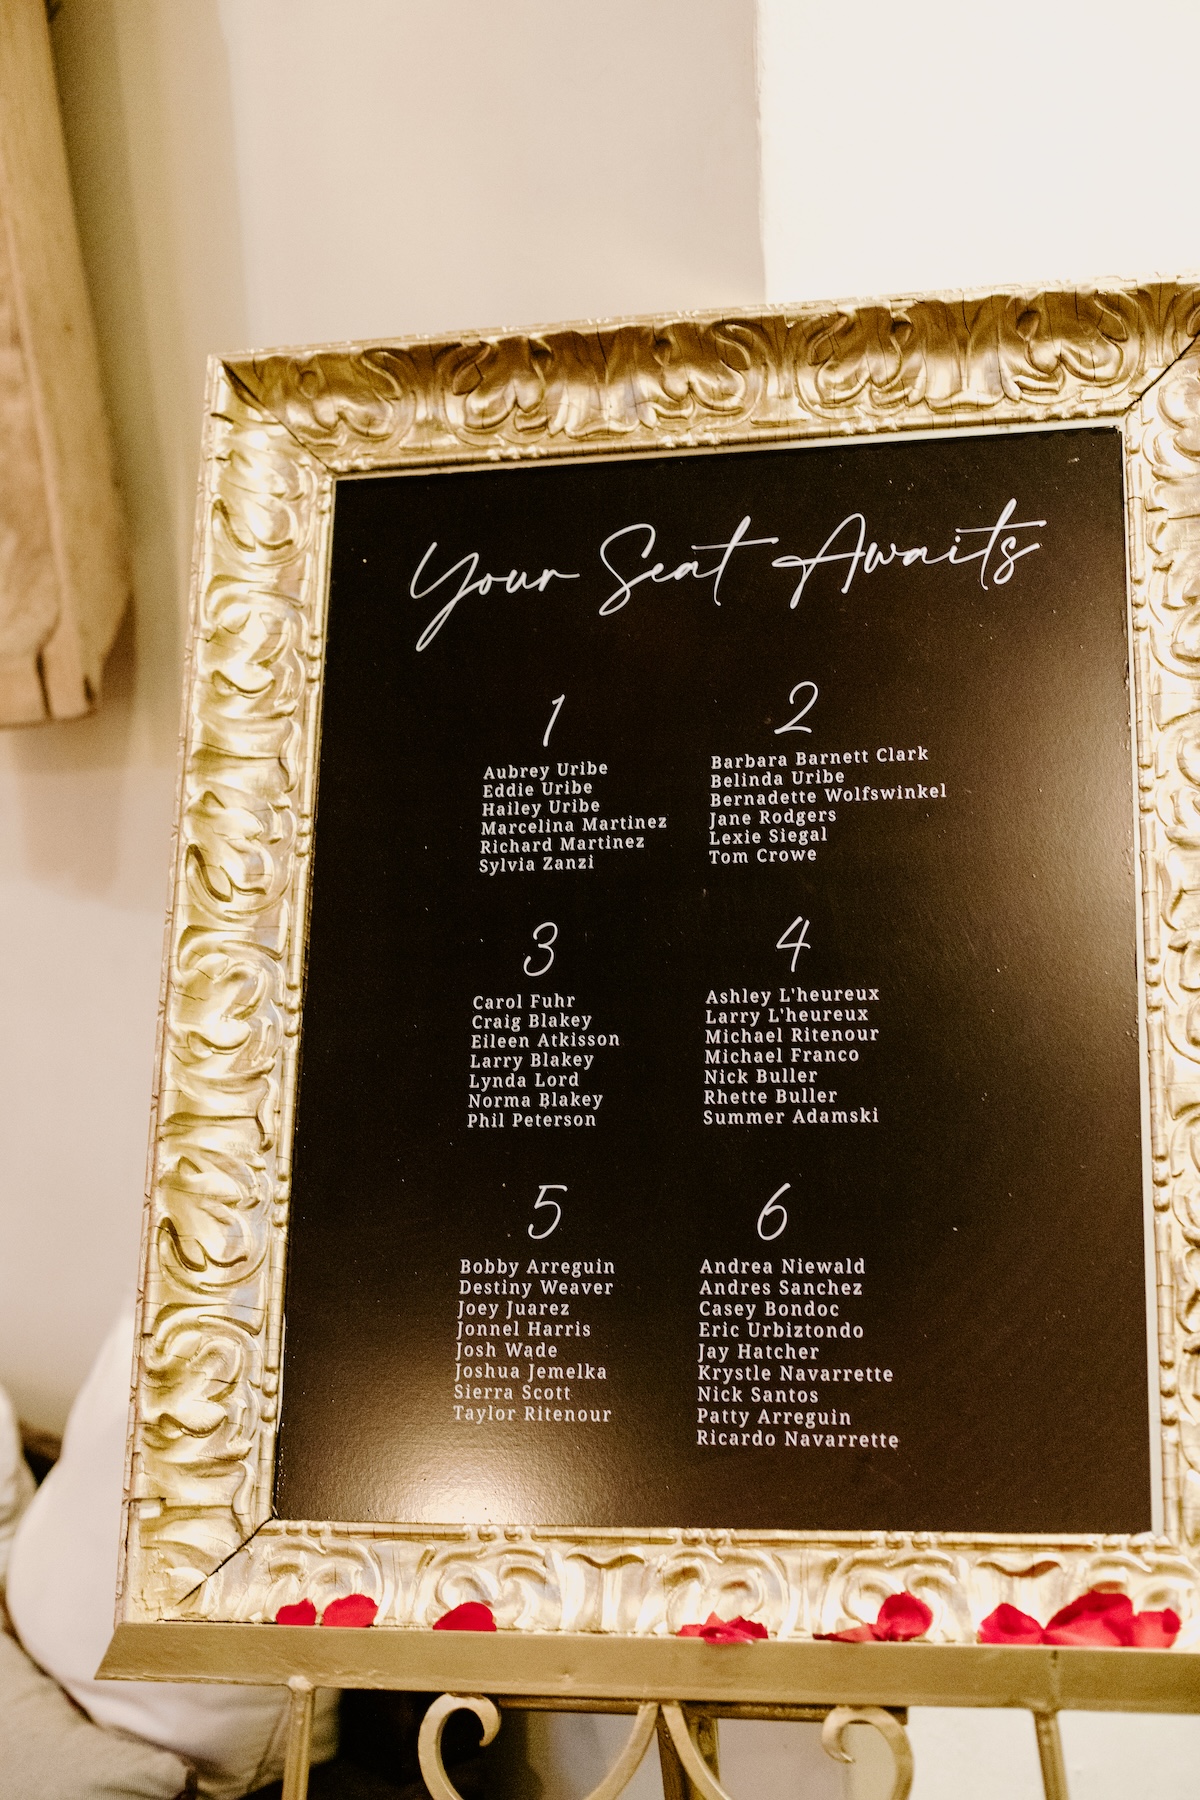 Your Seat Awaits
1
Aubrey Uribe
Eddie Uribe
Hailey Uribe
Marcelina Martinez
Richard Martinez
Sylvia Zanzi
2
Barbara Barnett Clark
Belinda Uribe
Bernadette Wolfswinkel
Jane Rodgers
Lexie Siegal
Tom Crowe
3
Carol Fuhr
Craig Blakey
Eileen Atkisson
Larry Blakey
Lynda Lord
Norma Blakey
Phil Peterson
4
Ashley L'heureux
Larry L'heureux
Michael Ritenour
Michael Franco
Nick Buller
Rhette Buller
Summer Adamski
5
Bobby Arreguin
Destiny Weaver
Joey Juarez
Jonnel Harris
Josh Wade
Joshua Jemelka
Sierra Scott
Taylor Ritenour
6
Andrea Niewald
Andres Sanchez
Casey Bondoc
Eric Urbiztondo
Jay Hatcher
Krystle Navarrette
Nick Santos
Patty Arreguin
Ricardo Navarrette